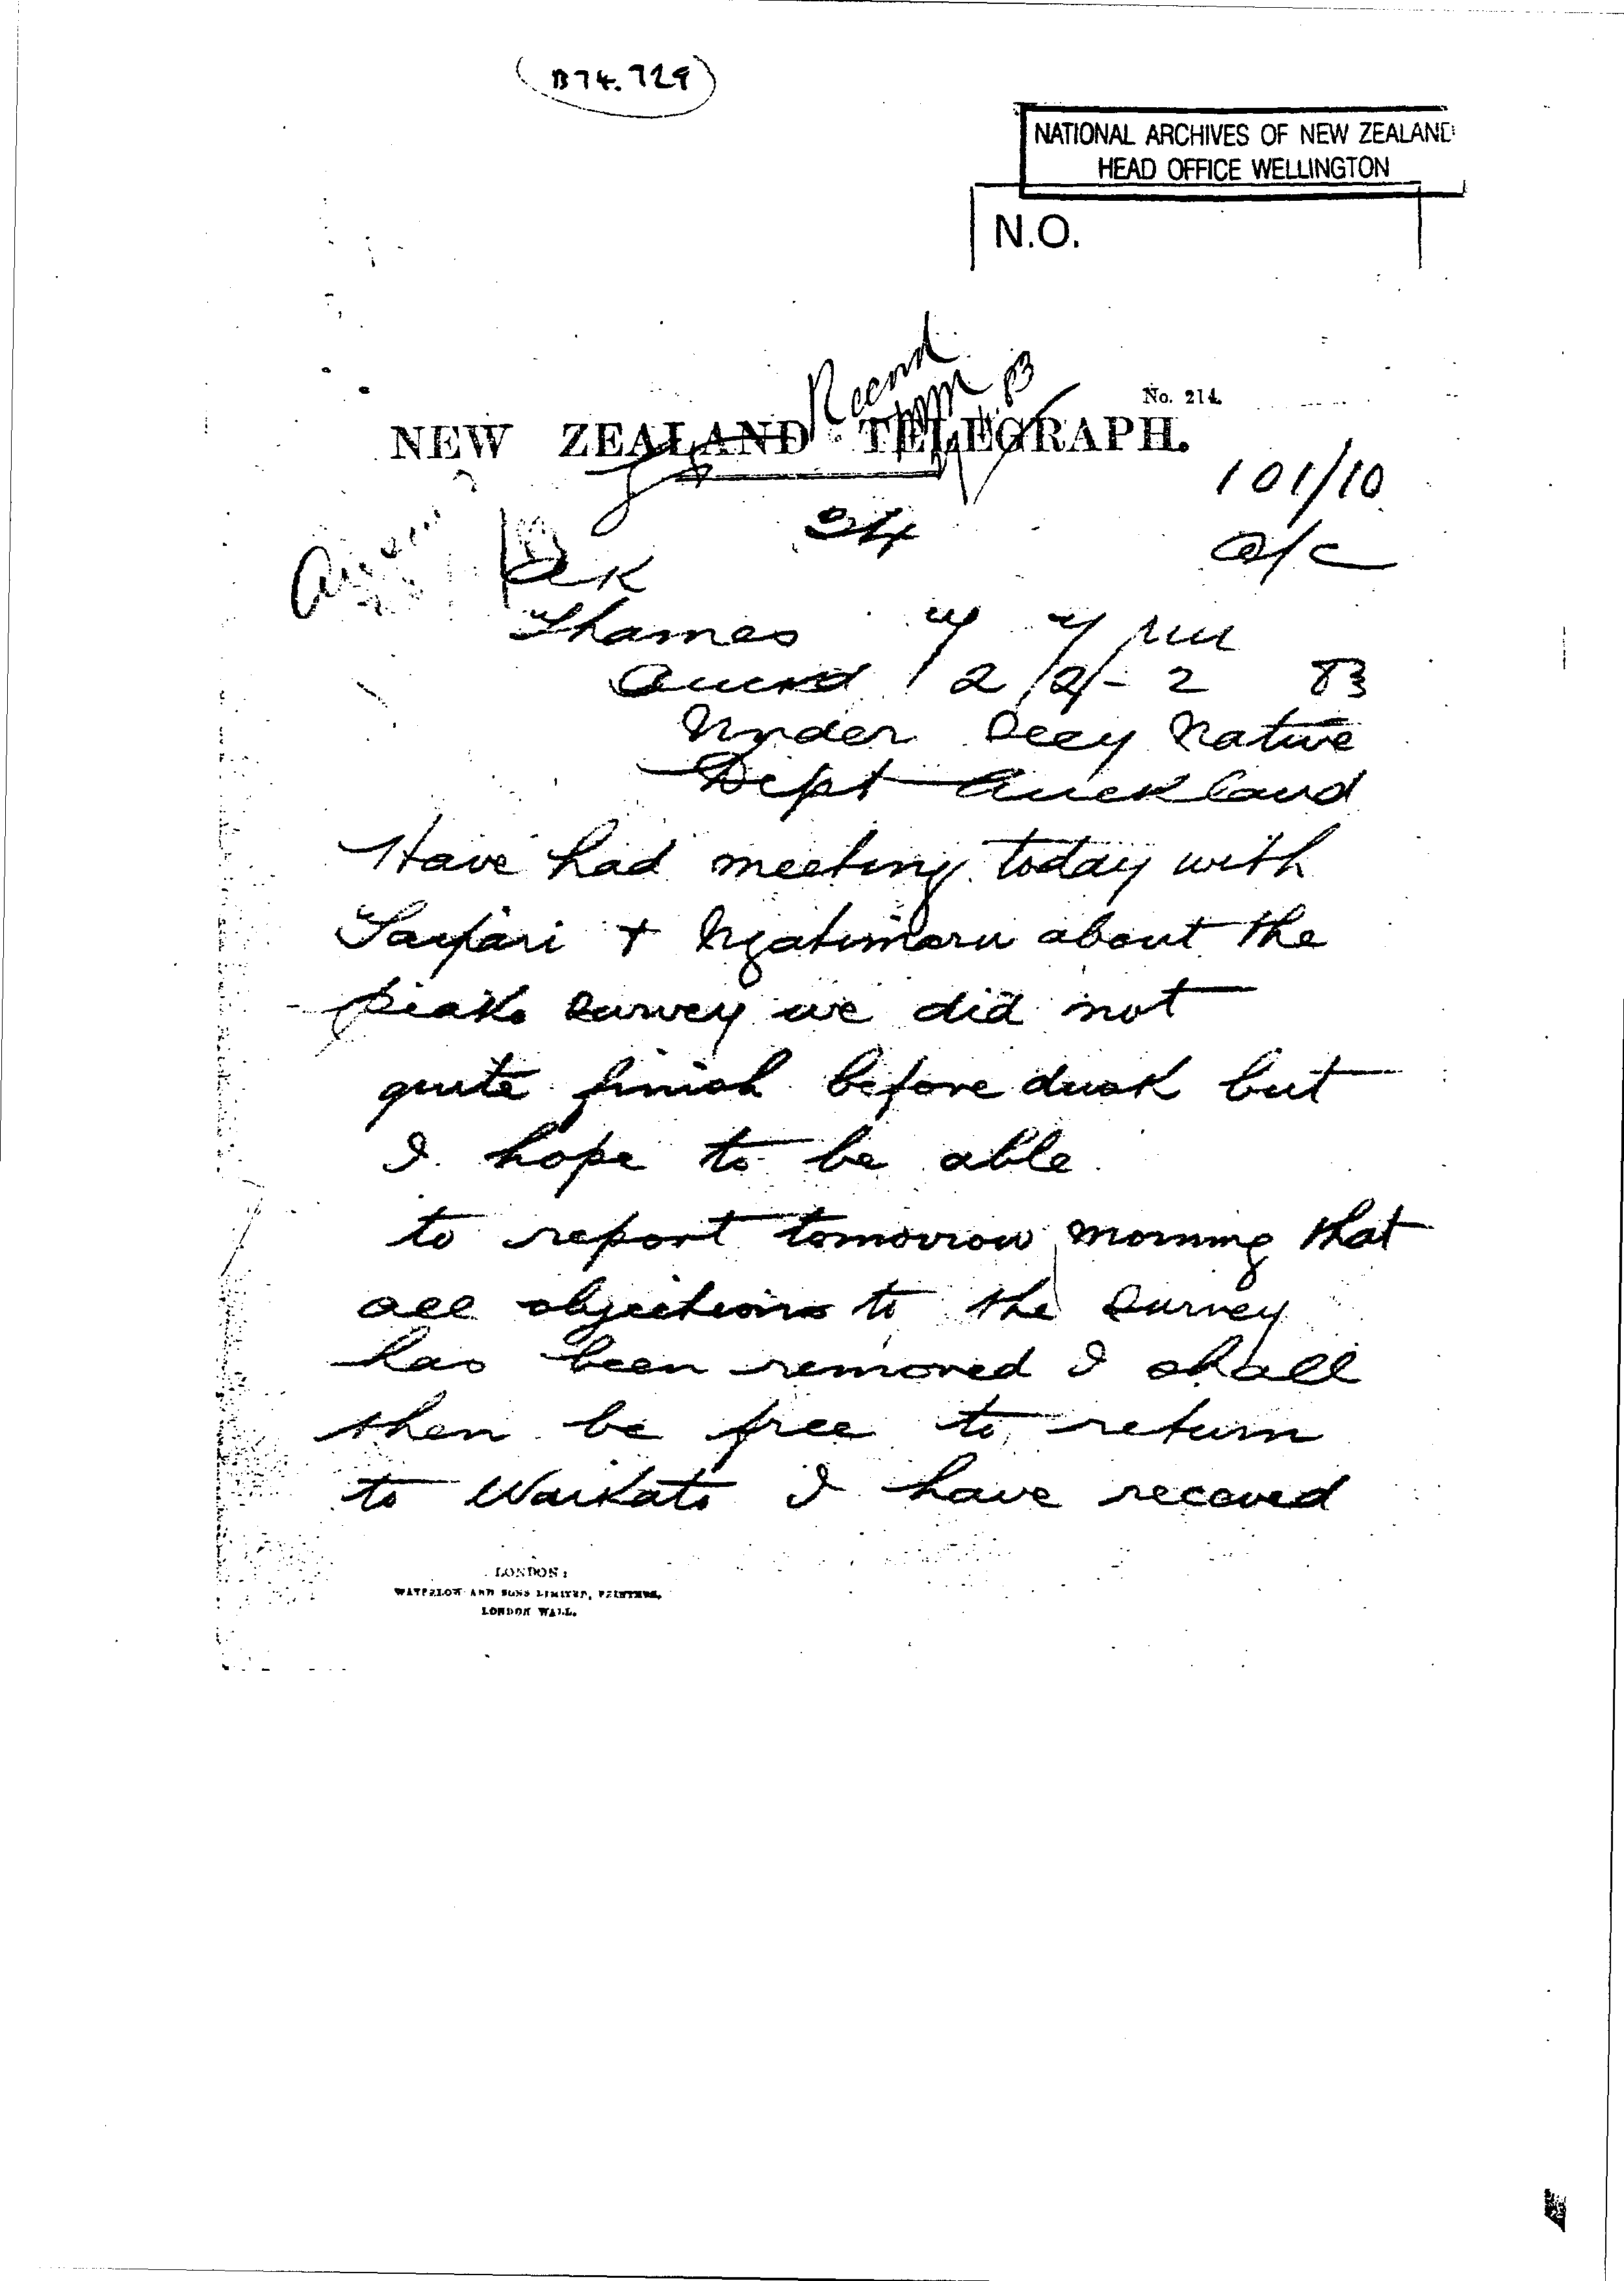 B74.729
NATIONAL ARCHIVES OF NEW ZEALAND
HEAD OFFICE WELLINGTON
N.O.
Recend
No. 214.
NEW ZEALAND TELEGRAPH.
101/10
34
a/c
Ak
Thames
Auckd 2 2 - 2 83
Under Secy Native
Dept Auckland
Have had meeting today with
Taipari + Ngatimaru about the
piako survey we did not
quite finish before dusk but
I hope to be able
to report tomorrow morning that
all objections to the survey
has been removed I shall
then be free to return
to Waikato I have receved
LONDON:
WATERLOW AND SONS LIMITED, PRINTERS,
LONDON WALL.